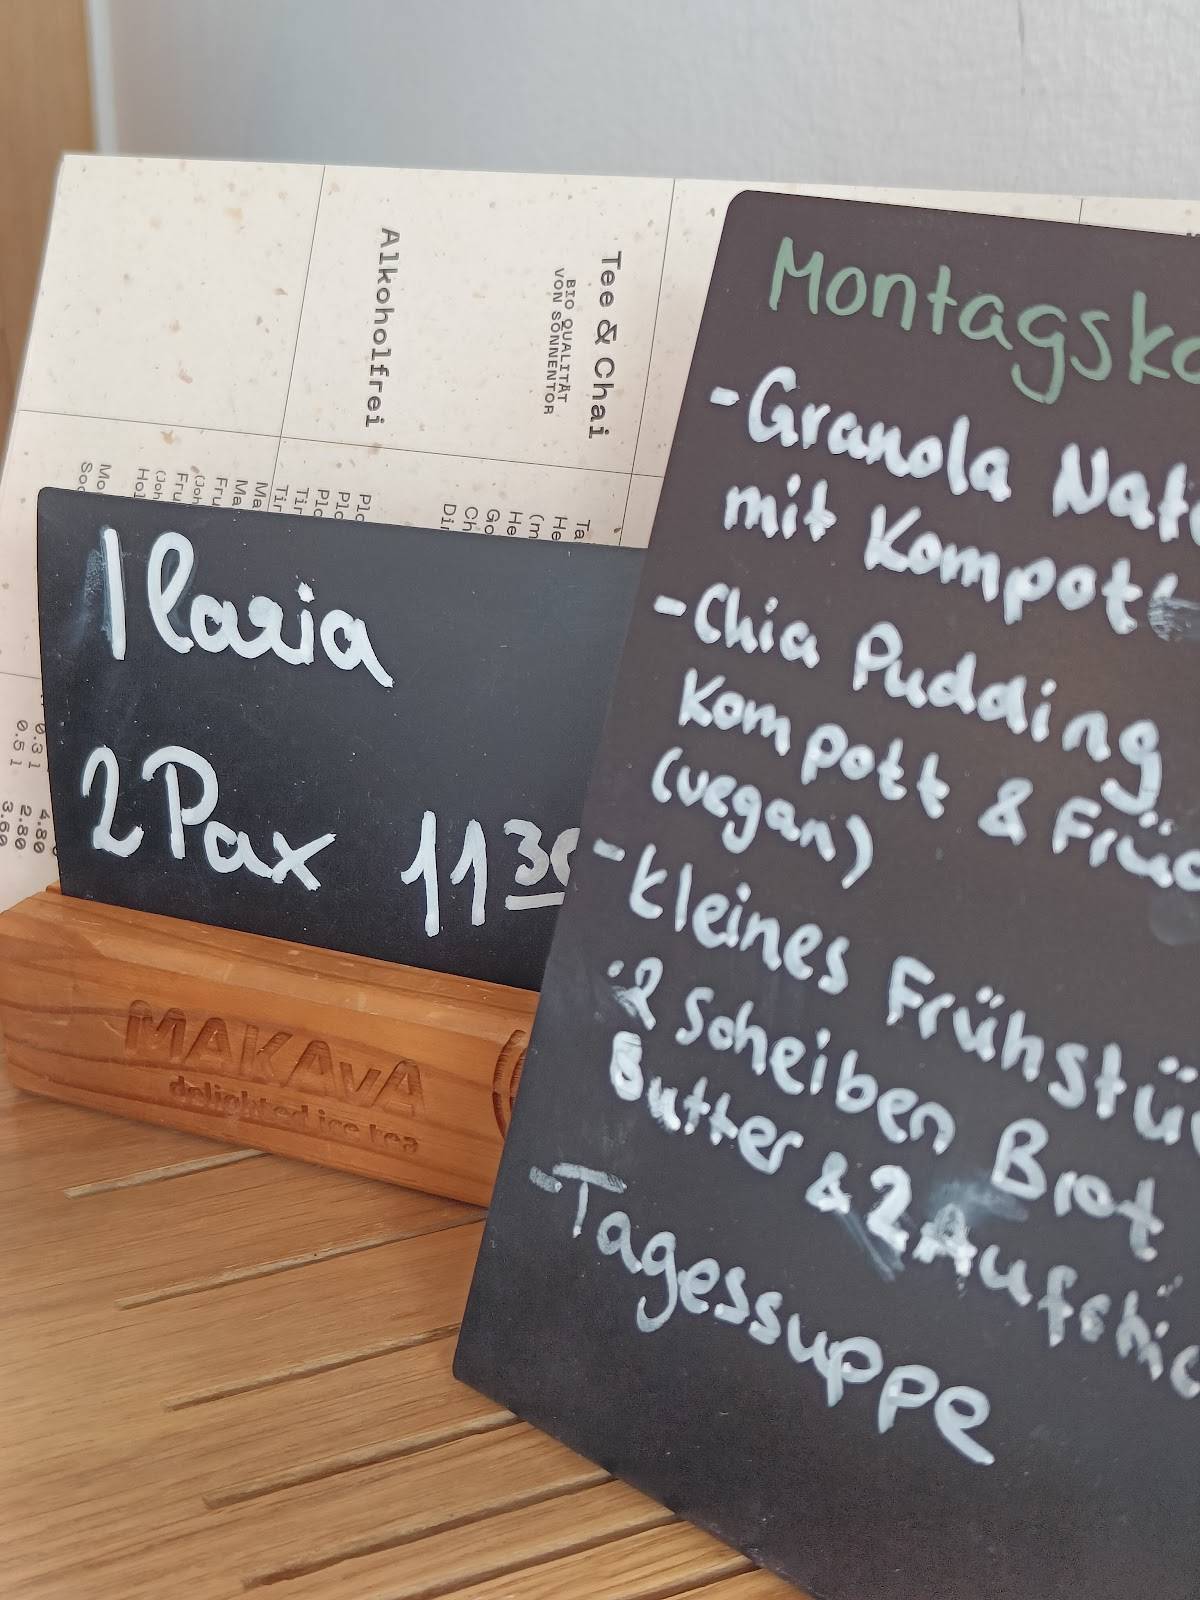 Tee & Chai
BIO QUALITÄT
VON SONNENTOR
Alkoholfrei
0.3 l 4.80
0.5 l 2.80
3.60
Ilaria
2 Pax 11 30
MAKAvA
delighted ice tea
Montagska
- Granola Nat
mit Kompott
- Chia Pudding
Kompott & Frü
(vegan)
- kleines Frühstü
· 2 Scheiben Brot
Butter & 2 Aufstri
- Tagessuppe